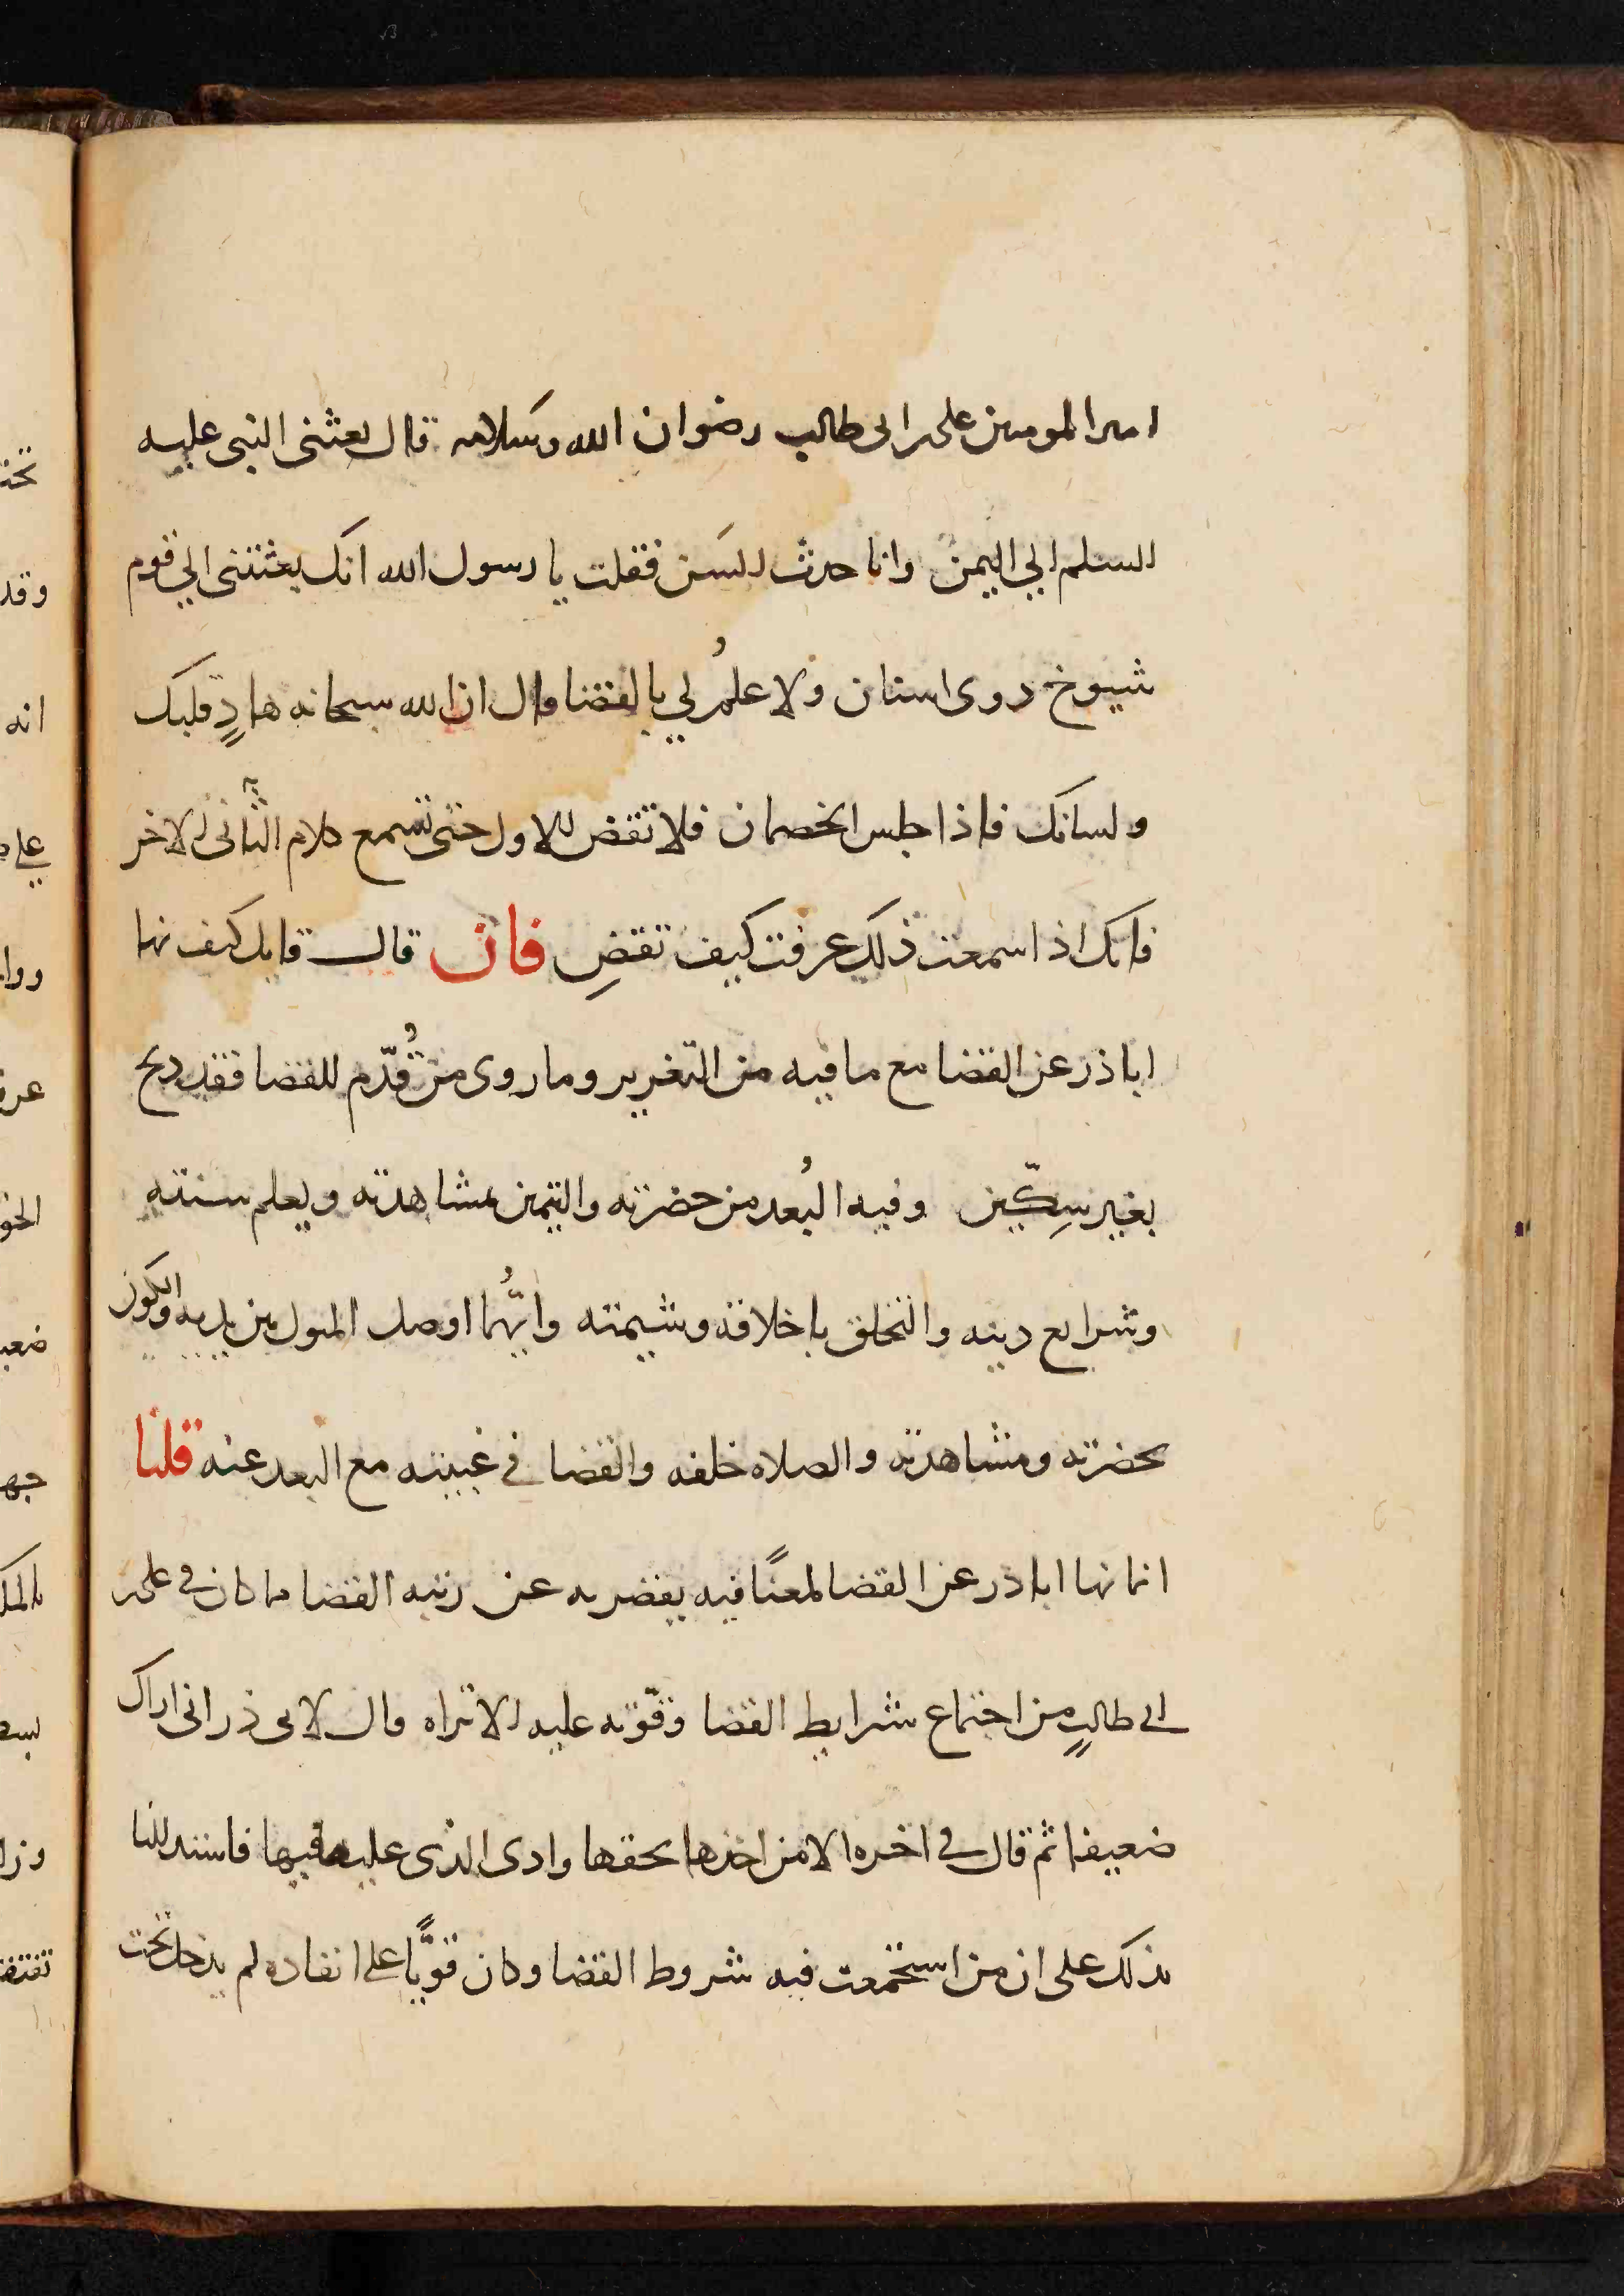 امير المومنين على بن ابى طالب رضوان الله وسلامه قال بعثنى النبى عليه
السلم الي اليمن وانا حدث السن فقلت يا رسول الله انك بعثتنى الي قوم
شيوخ ذوى اسنان ولا علمُ لي بالقضا قال ان الله سبحانه هادٍ قلبك
ولسانك فاذا جلس الخصمان فلا تقض للاول حتى تسمع كلام الثانى الاخر
فانك اذا سمعت ذلك عرفت كيف تقضِ فان قال قايل كيف نها
اباذر عن القضا مع ما فيه من التغرير وما روى من قُدّم للقضا فقد ذبح
بغير سِكّين وفيه البُعد من حضرته والتيمن بمشاهدته ويعلم سنته
وشرايع دينه والتخلق باخلاقه وشيمته وايُّما اوصل المثول بين يديه والكون
بحضرته ومشاهدته والصلاه خلفه والقضا في غيبته مع البعد عنه قلنا
انما نها اباذر عن القضا لمعنًا فيه يقصر به عن رتبه القضا ما كان في على بن
ابي طالبٍ من اجتماع شرايط القضا وقوّته عليه الا تراه قال لابى ذر انى اراك
ضعيفا ثم قال في اخره الا من اخذها بحقها وادى الذى عليه فيها فاستدللنا
بذلك على ان من استجمعت فيه شروط القضا وكان قويًّا على انفاده لم يدخل تحت